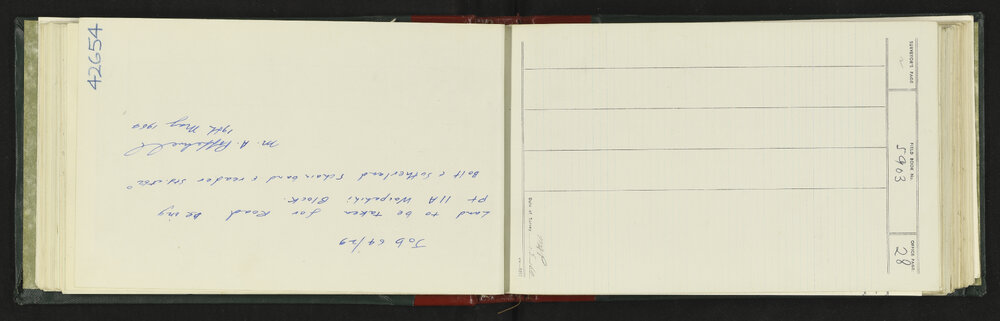 42654
Job 64/29
Land to be taken for Road being
Pt 11A Waipahihi Block.
Bolt & Sutherland 5 chain band &
M. A.
19th May 1964
SURVEYOR'S PAGE
FIELD BOOK No.
5903
OFFICE PAGE
28
Date of Survey